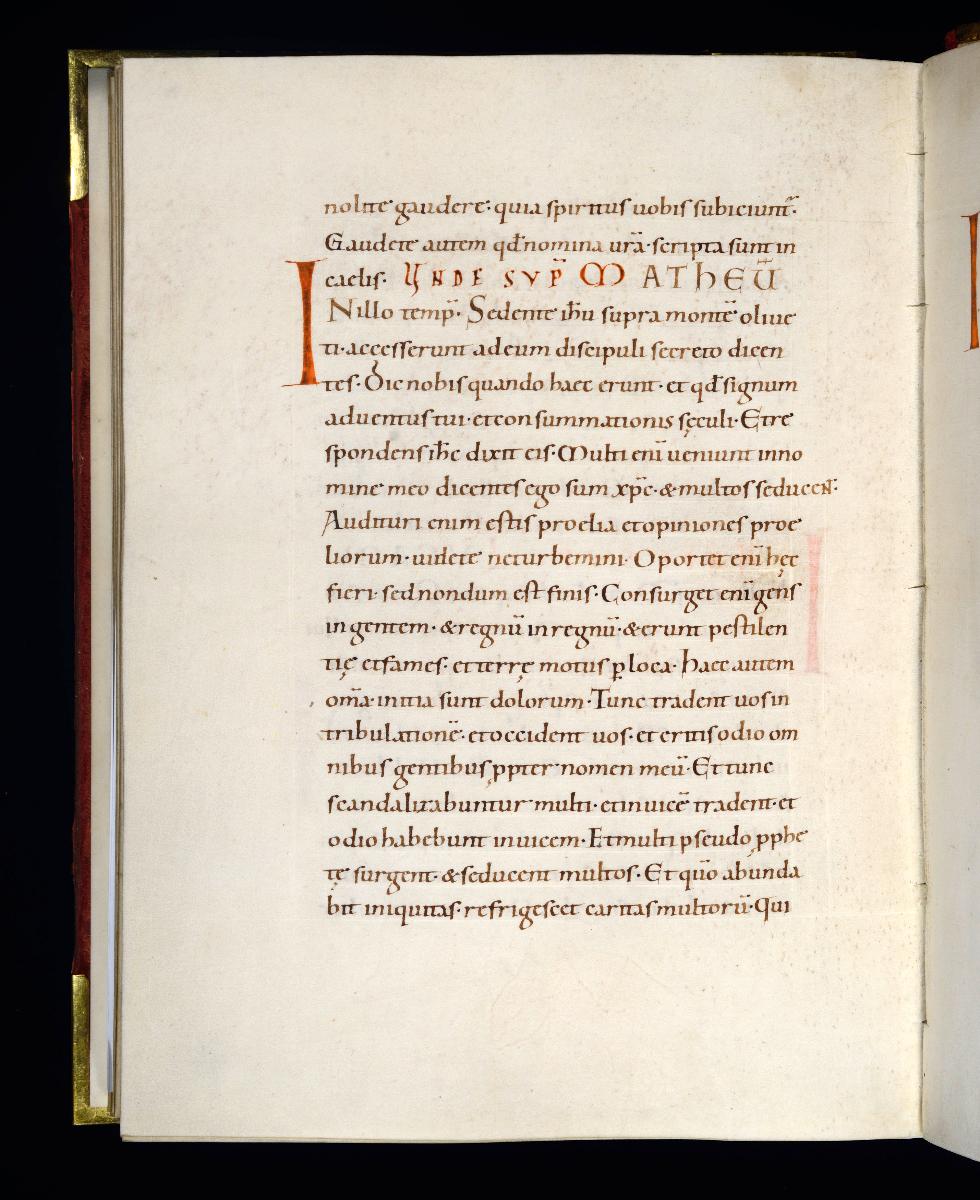 nolite gaudere· quia spiritus uobis subiciunt̄·
Gaudete autem qđ nomina urā· scripta sunt in
caelis· UNDE SVP̄ MATHEŪ
INillo temp̄· Sedente ih̄u supra montē oliue
ti· accesserunt ad eum discipuli secreto dicen
tes· Dic nobis quando haec erunt· et qđ signum
aduentus tui· et consummationis sęculi· Et re
spondens ih̄c dixit eis· Multi enī ueniunt in no
mine meo dicentes ego sum xp̄c· & multos seducen̄t·
Audituri enim estis proelia et opiniones proe
liorum· uidete ne turbemini· Oportet enī hęc
fieri· sed nondum est finis· Consurget enī gens
in gentem· & regnū in regnū· & erunt pestilen
tię et fames· et terrę motus ꝑ loca· haec autem
om̄a· initia sunt dolorum· Tunc tradent uos in
tribulationē· et occident uos· et eritis odio om
nibus gentibus ꝓpter nomen meū· Et tunc
scandalizabuntur multi· et inuicē tradent· et
odio habebunt inuicem· Et multi pseudo ꝓphe
tę surgent· & seducent multos· Et qūo abunda
bit iniquitas· refrigescet caritas multorū· Qui